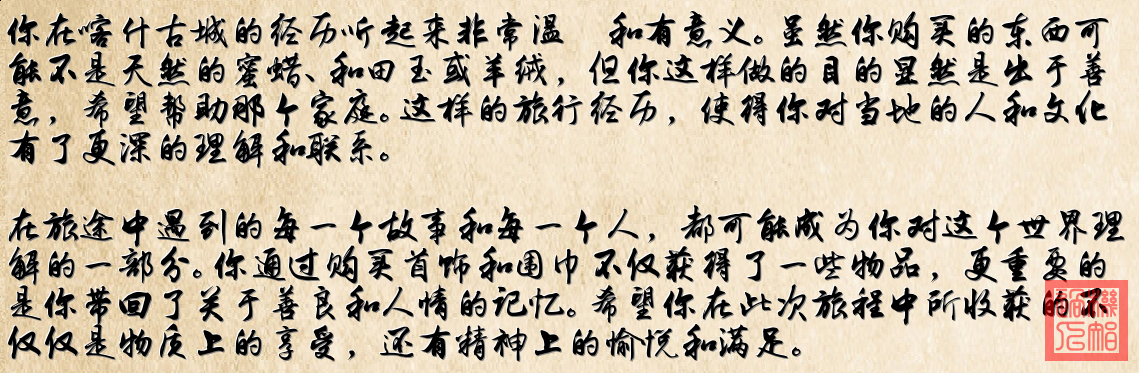 你在喀什古城的经历听起来非常温 和有意义。虽然你购买的东西可
能不是天然的蜜蜡、和田玉或羊绒，但你这样做的目的显然是出于善
意，希望帮助那个家庭。这样的旅行经历，使得你对当地的人和文化
有了更深的理解和联系。
在旅途中遇到的每一个故事和每一个人，都可能成为你对这个世界理
解的一部分。你通过购买首饰和围巾不仅获得了一些物品，更重要的
是你带回了关于善良和人情的记忆。希望你在此次旅程中所收获的不
仅仅是物质上的享受，还有精神上的愉悦和满足。